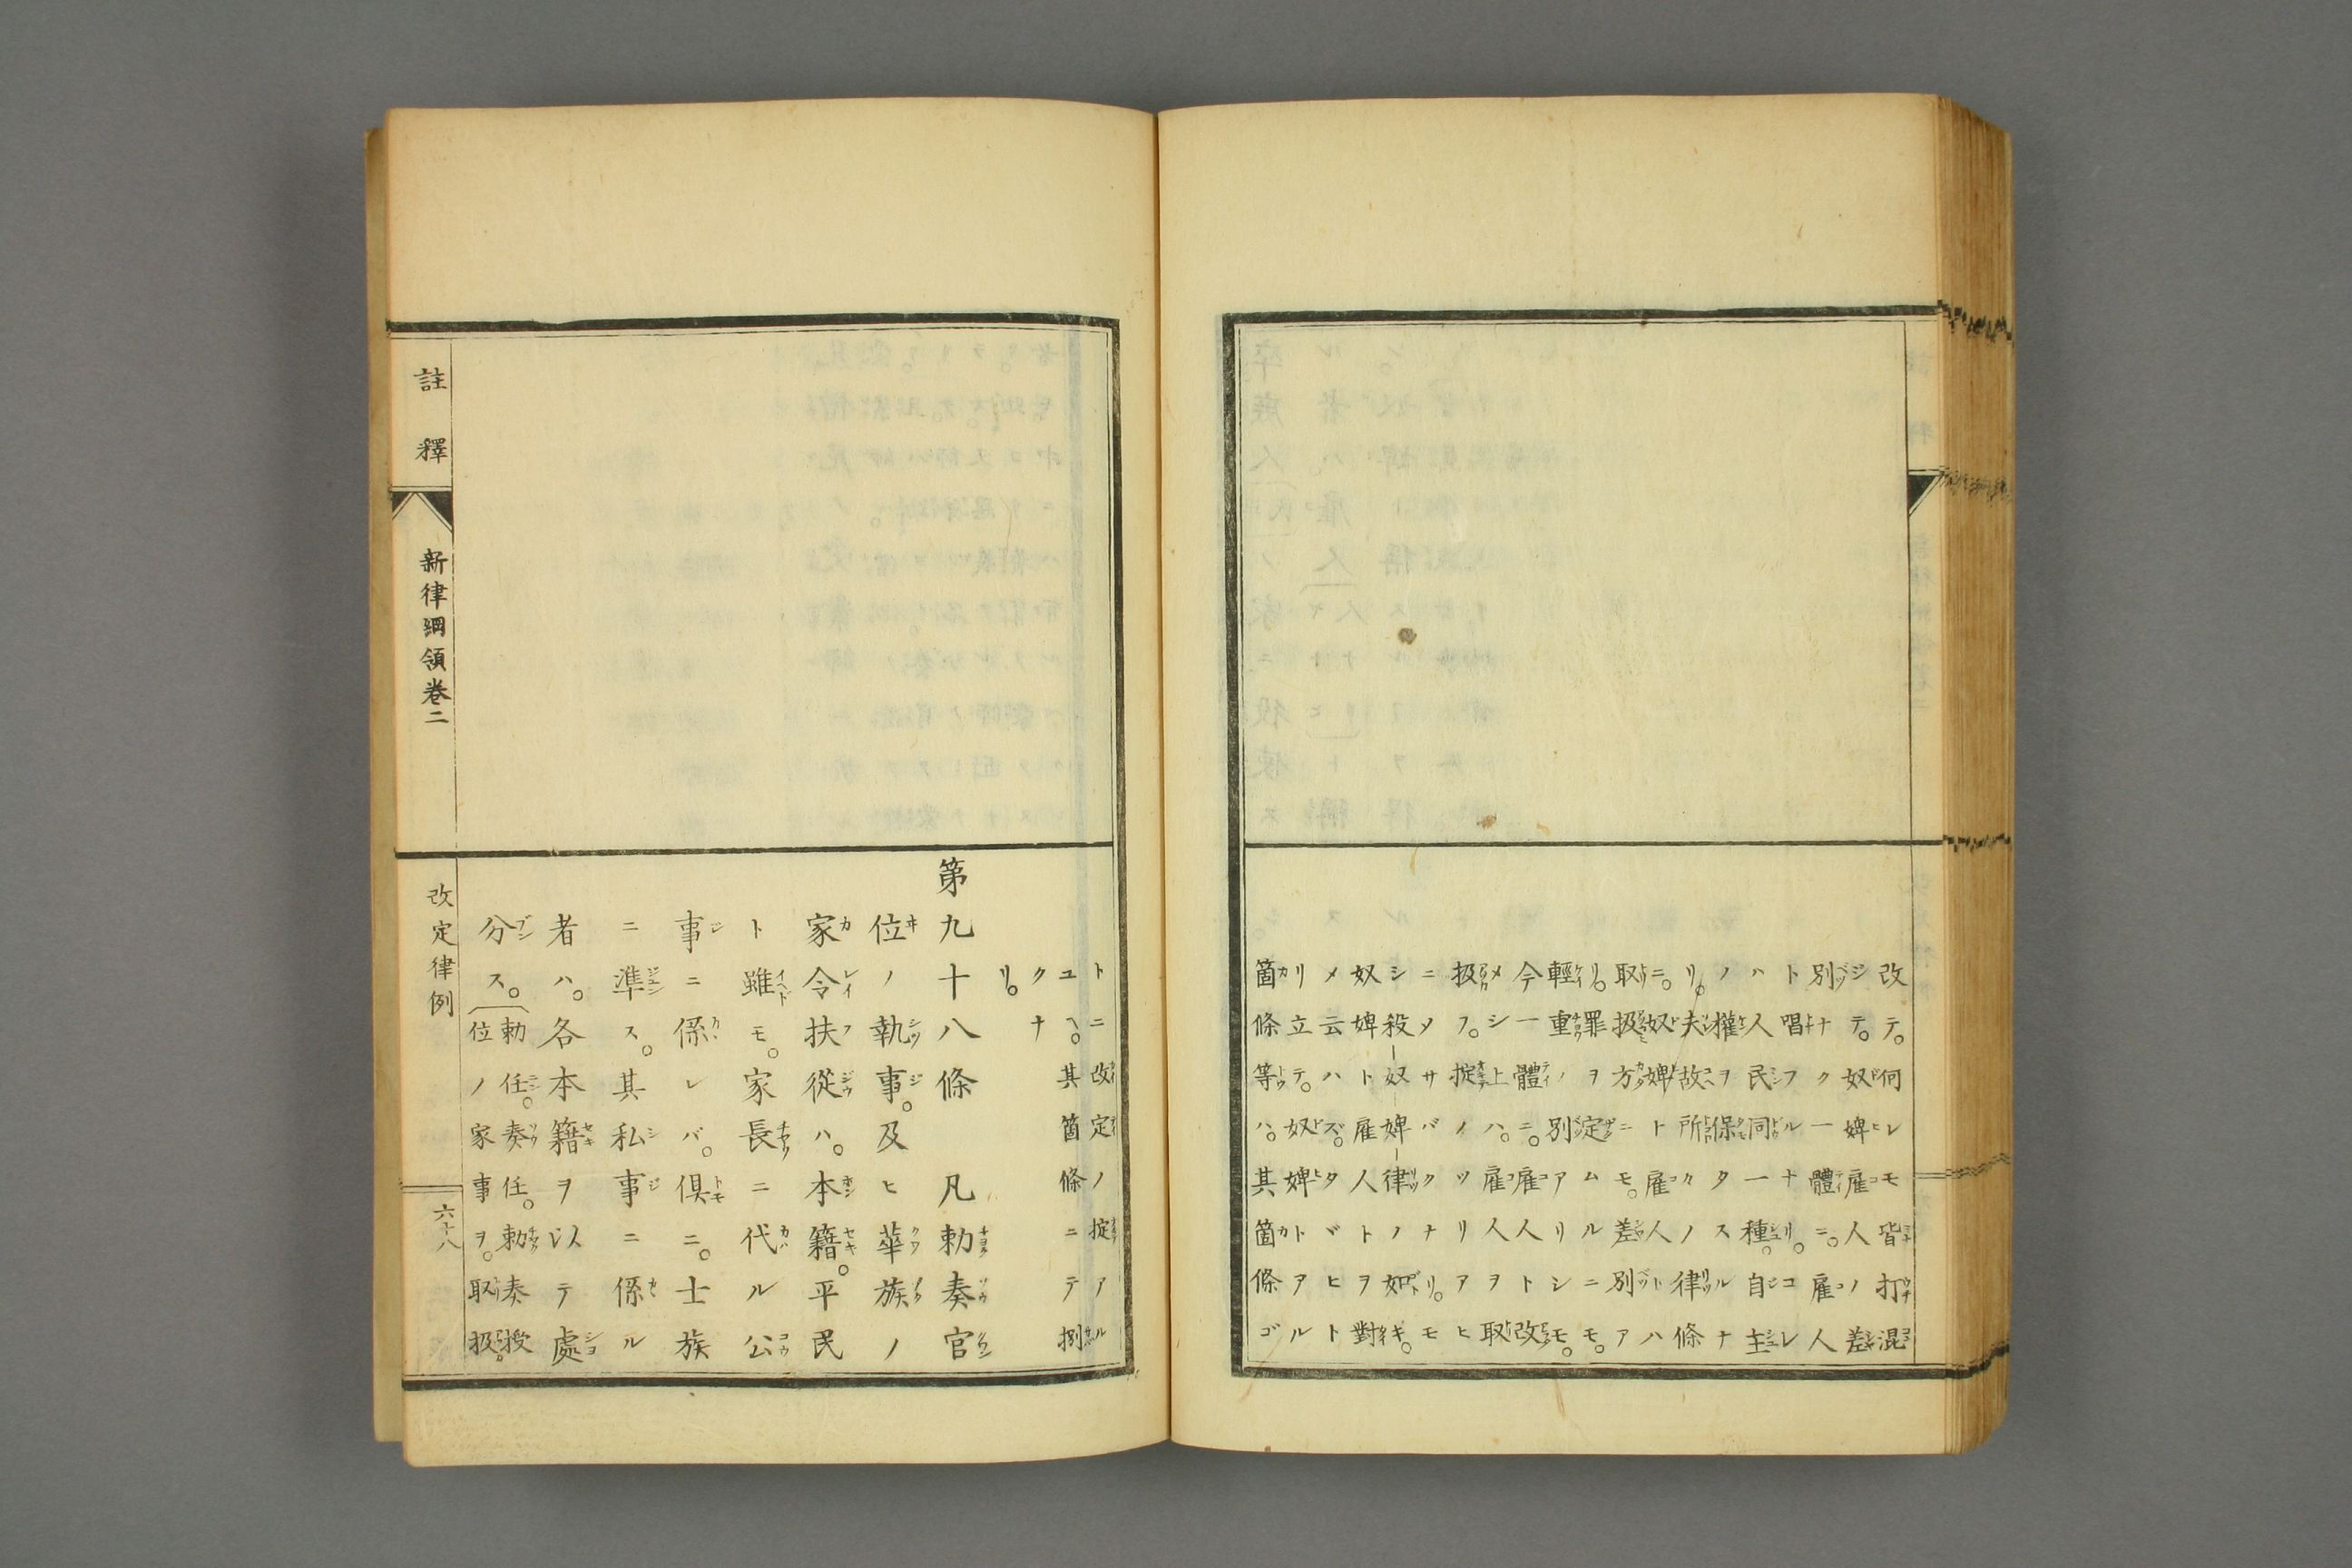 改テ。何レモ皆打混
ジテ。奴婢雇人ノ差
別ナク一體ニ。雇人
ト唱フルナリ。コレ
ハ人民同一種。自主
ノ權ヲ保タスルナ
リ。夫故所々ノ律條
ニ。奴婢ト雇人トハ
取扱方ニモ。差別ア
リ。罪ヲ定ムルニモ。
輕重ノ別アリシモ。
今一體ニ。雇人ト改
メシ上ハ。雇人ヲ取
扱フ。掟ノツリアヒ
ニメサバクナリ。モ
シ殺奴婢律ノ如キ。
奴婢ト雇人トヲ對
メ云ハズ。タヾヒト
リ立テ。奴婢トアル
箇條等ハ。其箇條ゴ
トニ改定ノ掟アル
ユヘ。其箇條ニテ捌
クナ
リ。
第九十八條 凡勅奏官
位ノ執事。及ヒ華族ノ
家令扶從ハ。本籍。平民
ト雖モ。家長ニ代ル公
事ニ係レバ。倶ニ。士族
ニ準ス。其私事ニ係ル
者ハ。各本籍ヲ以テ處
分ス。勅任。奏任。勅奏授
位ノ家事ヲ。取扱。
註釋 新律綱領卷二 改定律例 六十八